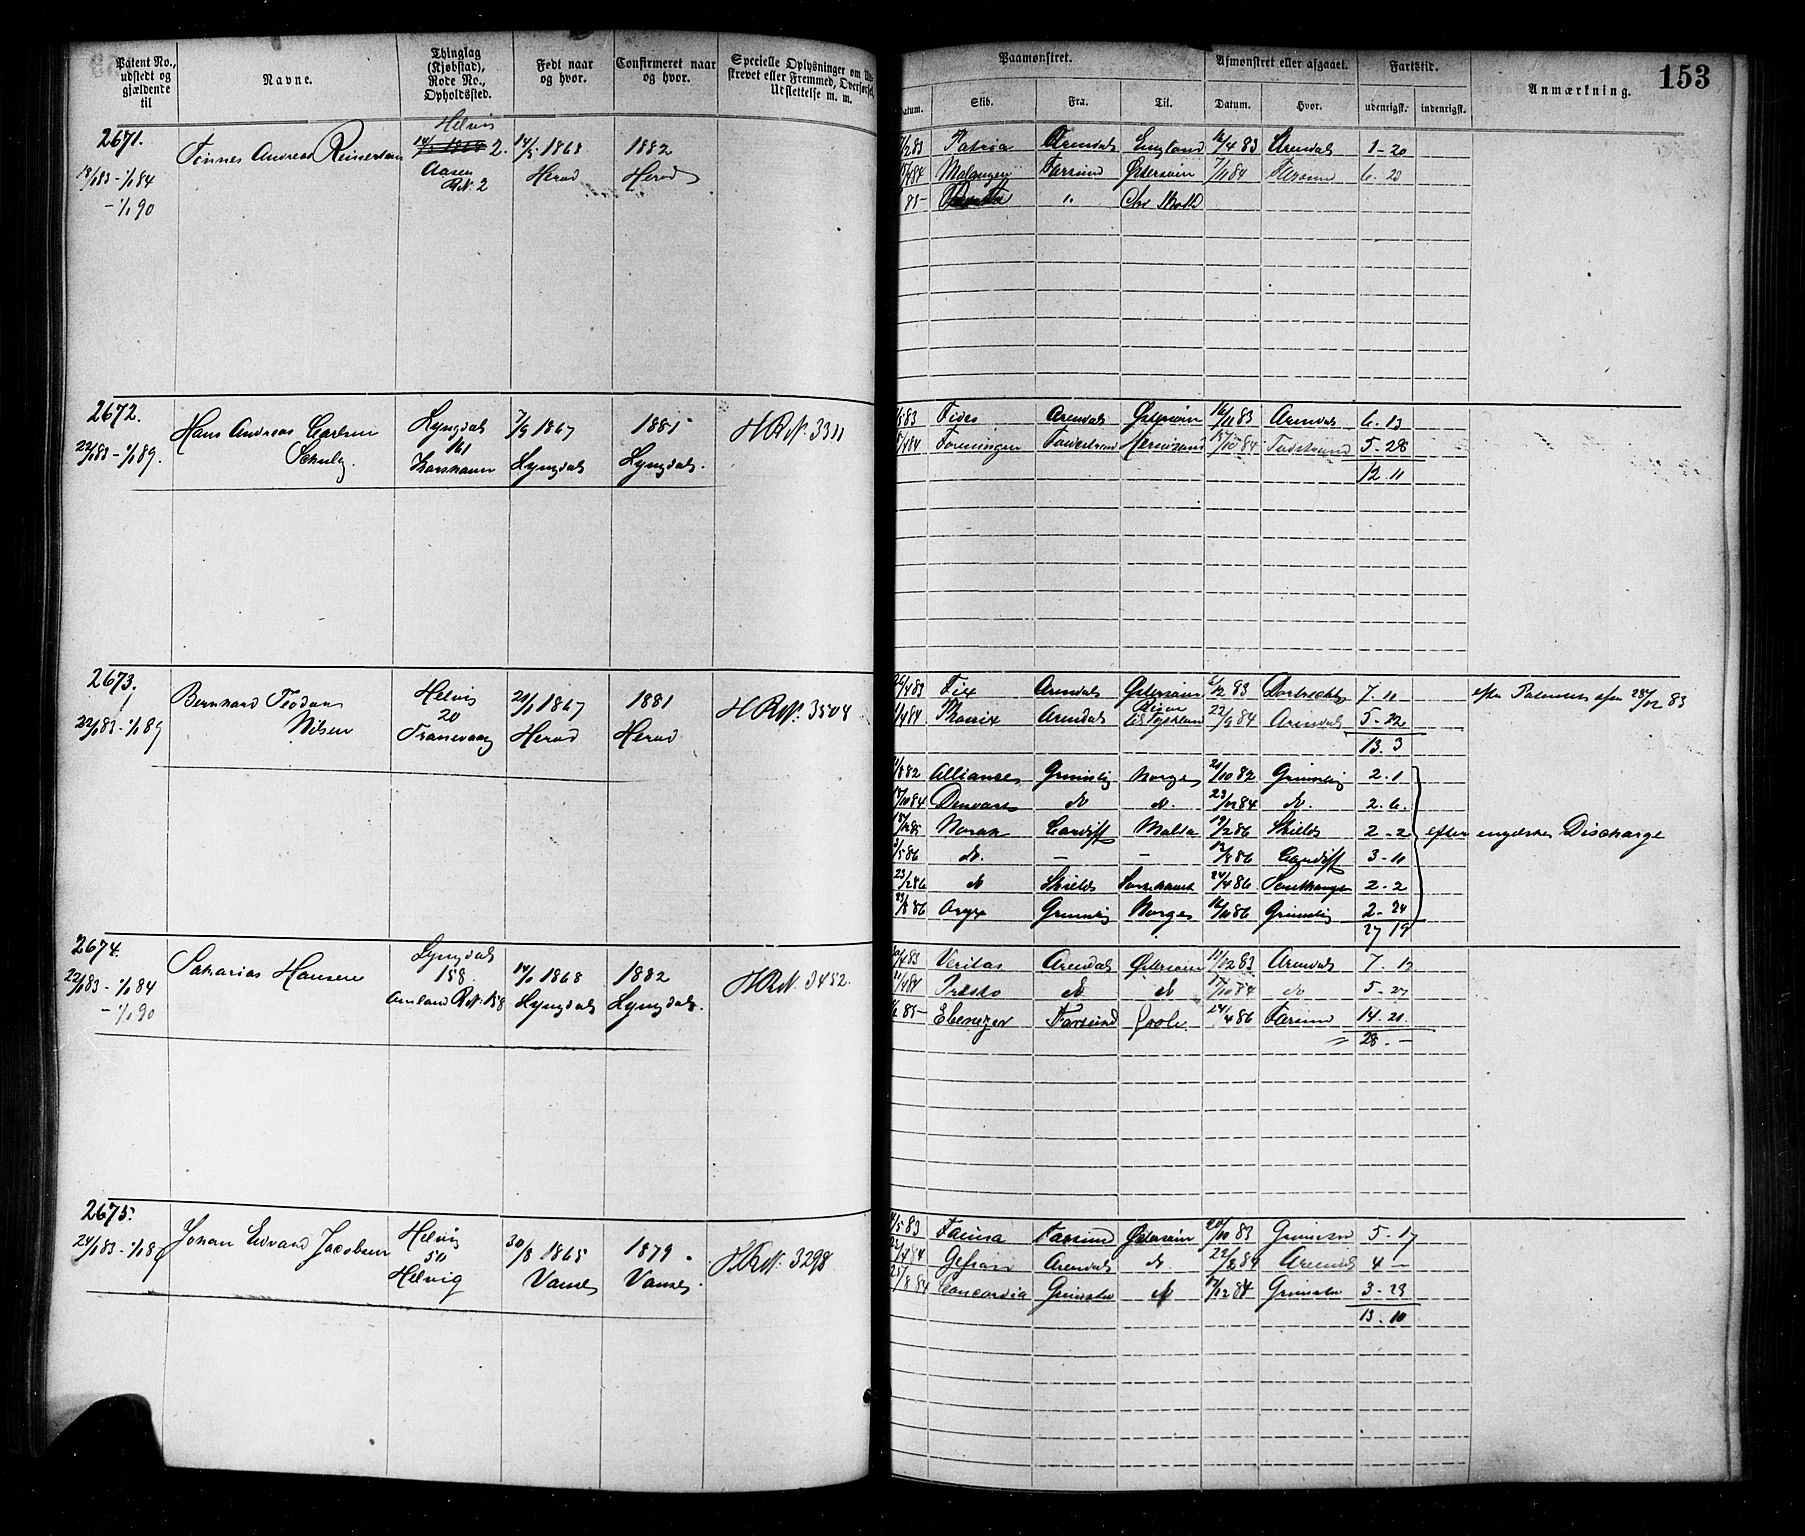 153
Patent No., udstedt og gjældende til
Navne.
Thinglag (Kjøbstad), Rode No., Opholdssted.
Født naar og hvor.
Confirmeret naar og hvor.
Specielle Oplysninger om
Udslettelse m. m.
Paamønstret.
Afmønstret eller afgaaet.
Fartstid.
Anmærkning.
Datum. Skib. Fra. Til. Datum. Hvor. udenrigsk. indenrigsk.
2671.
Tønnes Andreas Reinertsen
Helvig
2.
Aasen
R.N. 2
14/5 1868
Herad
1882
Herad
18/1 83 - 1/1 84
- 1/1 90
Patria Arendal England 16/4 83 Arendal 1-20
Malangen Farsund Østersøen 7/11 84 Farsund 6.20
2672.
22/1 83 - 1/1 89.
Hans Andreas Carlsen
Lyngdal
161
Korshavn
7/9 1867
Lyngdal
1881
Lyngdal.
H.R.N. 3311
Fides Arendal Østersøen 16/11 83 Arendal 6.13
Foreningen 15/10 84 5-28
12.11
2673.
22/1 83 - 1/1 89
Bernhard Teodor
Nilsen
Helvig
20
Tranevaag
21/1 1867
Herad
1881
Herad
H.R.N. 3504
26/4 83 Fix Arendal Østersøen 6/12 83 Dordrecht 7.10 efter Patentets afsn 28/12 83
Arendal 22/9 84 Arendal 5-22
13.3
82 Alliance Grimsby Norge 21/10 82 Grimsby 2-1
17/10 84 do do. 23/12 84 do. 2.6.
Norden Cardiff Malta 19/2 86 Shields 2-2 efter engelske Discharge
5/5 86 do. - - 12/8 86 Cardiff 3-10
23/2 86 do Shields 24/4 86 2-2
23/8 86 Onyx Grimsby Norge 16/11 86 Grimsby 2-24
27 19
2674.
22/1 83 - 1/1 84
- 1/1 90
Sakarias Hansen
Lyngdal
158
Amland R.N. 158
14/1 1868
Lyngdal
1882
Lyngdal.
H.R.N. 3452.
20/4 83 Veritas Arendal Østersøen 11/12 83 Arendal 7.12
21/4 84 Præsto do do 17/10 84 do 5-27
85- Ebenezer Farsund Goole 24/4 86 Farsund 14.21
28.-
2675.
24/1 83 - 1/1 89
Johan Edvard Jacobsen
Helvig
50
Helvig
30/8 1865
Vanse
1879.
Vanse.
H.R.N. 3298
5 83 Fauna Farsund Østersøen 20/10 83 Grimstad 5-17
Gefion Arendal do 22/8 84 Arendal 4-
25/8 84 Concordia Grimstad do 17/12 84 Grimstad 3-23
13.10